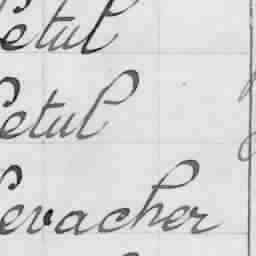 Petul
Petul
Levacher